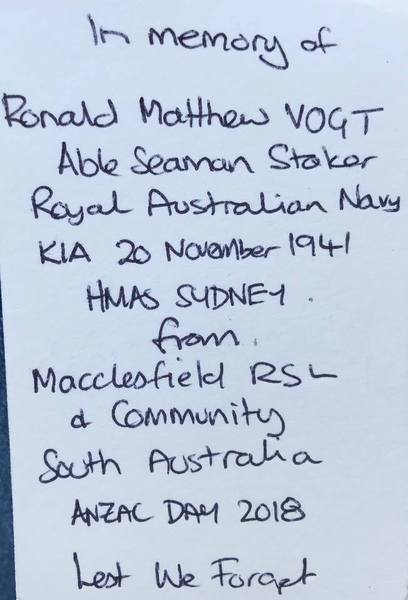 In memory of
Ronald Matthew VOGT
Able Seaman Stoker
Royal Australian Navy
KIA 20 November 1941
HMAS SYDNEY.
from.
Macclesfield RSL
& Community
South Australia
ANZAC DAY 2018
Lest We Forget